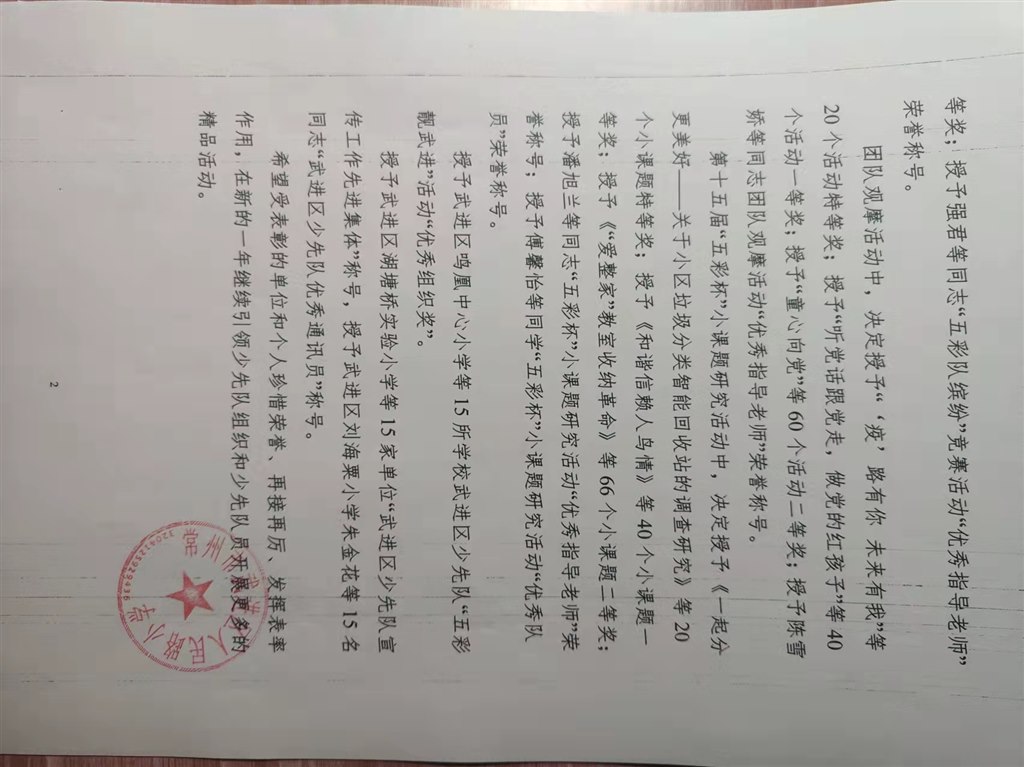 等奖；授予强君等同志“五彩队缤纷”竞赛活动“优秀指导老师”
荣誉称号。
团队观摩活动中，决定授予“‘疫’路有你 未来有我”等
20个活动特等奖；授予“听党话跟党走，做党的红孩子”等40
个活动一等奖；授予“童心向党”等60个活动二等奖；授予陈雪
娇等同志团队观摩活动“优秀指导老师”荣誉称号。
第十五届“五彩杯”小课题研究活动中，决定授予《一起分
更美好——关于小区垃圾分类智能回收站的调查研究》等20
个小课题特等奖；授予《和谐信赖人鸟情》等40个小课题一
等奖；授予《“爱整家”教室收纳革命》等66个小课题二等奖；
授予潘旭兰等同志“五彩杯”小课题研究活动“优秀指导老师”荣
誉称号；授予傅馨怡等同学“五彩杯”小课题研究活动“优秀队
员”荣誉称号。
授予武进区鸣凰中心小学等15所学校武进区少先队“五彩
靓武进”活动“优秀组织奖”。
授予武进区湖塘桥实验小学等15家单位“武进区少先队宣
传工作先进集体”称号，授予武进区刘海粟小学朱金花等15名
同志“武进区少先队优秀通讯员”称号。
希望受表彰的单位和个人珍惜荣誉、再接再厉、发挥表率
作用，在新的一年继续引领少先队组织和少先队员开展更多的
精品活动。
人民路小学
2